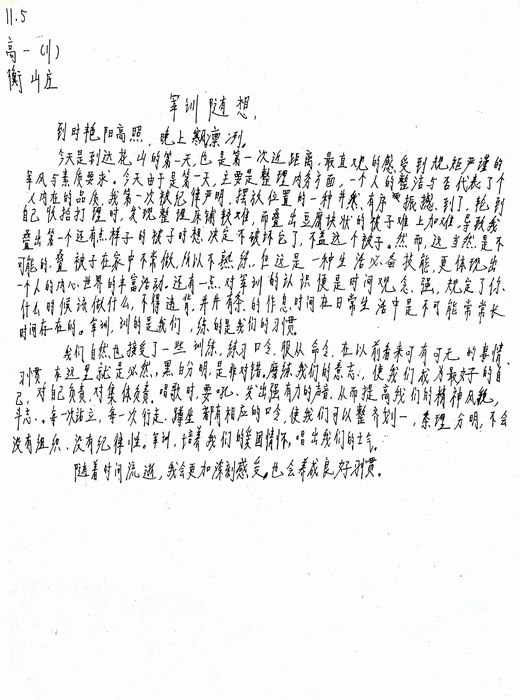 11.5
高一(1)
衡山庄
军训随想
到时艳阳高照,晚上飘凛冽。
今天是到达花山的第一天,也是第一次近距离,最直观的感受到规矩严谨的
军风与素质要求。今天由于是第一天,主要是整理内务方面,一个人的整洁与否代表了个
人内在的品质,我第一次被纪律严明,摆放位置的一种井然有序振撼到了,轮到
自己收拾打理时,发现整理床铺较难,而叠出豆腐块状的被子难上加难,导致我
叠出第一个还有点样子的被子时想决定不破坏它了,不盖这个被子。然而,这当然是不
可能的。叠被子在家中不常做,所以不熟练,但这是一种生活必备技能,更体现出
一个人的内心世界的丰富活动。还有一点,对军训的认识便是时间观念强,规定了你
什么时候该做什么,不得违背。井井有条的作息时间在日常生活中是不可能常常长
时间存在的。军训,训的是我们,练的是我们的习惯
我们自然也接受了一些训练。练习口令,服从命令,在以前看来可有可无的事情、
习惯,在这里就是必然,黑白分明,是非对错。磨练我们的意志,使我们成为最好的自
己,对自己负责,对集体负责。唱歌时,要吼,发出强有力的声音,从而提高我们的精神风貌,
斗志。每一次站立,每一次行走、蹲坐都有相应的口令,使我们可以整齐划一,条理分明,不会
没有组织、没有纪律性。军训,培养我们的爱国情怀,唱出我们的士气。
随着时间流逝,我会更加深刻感受,也会养成良好习惯。